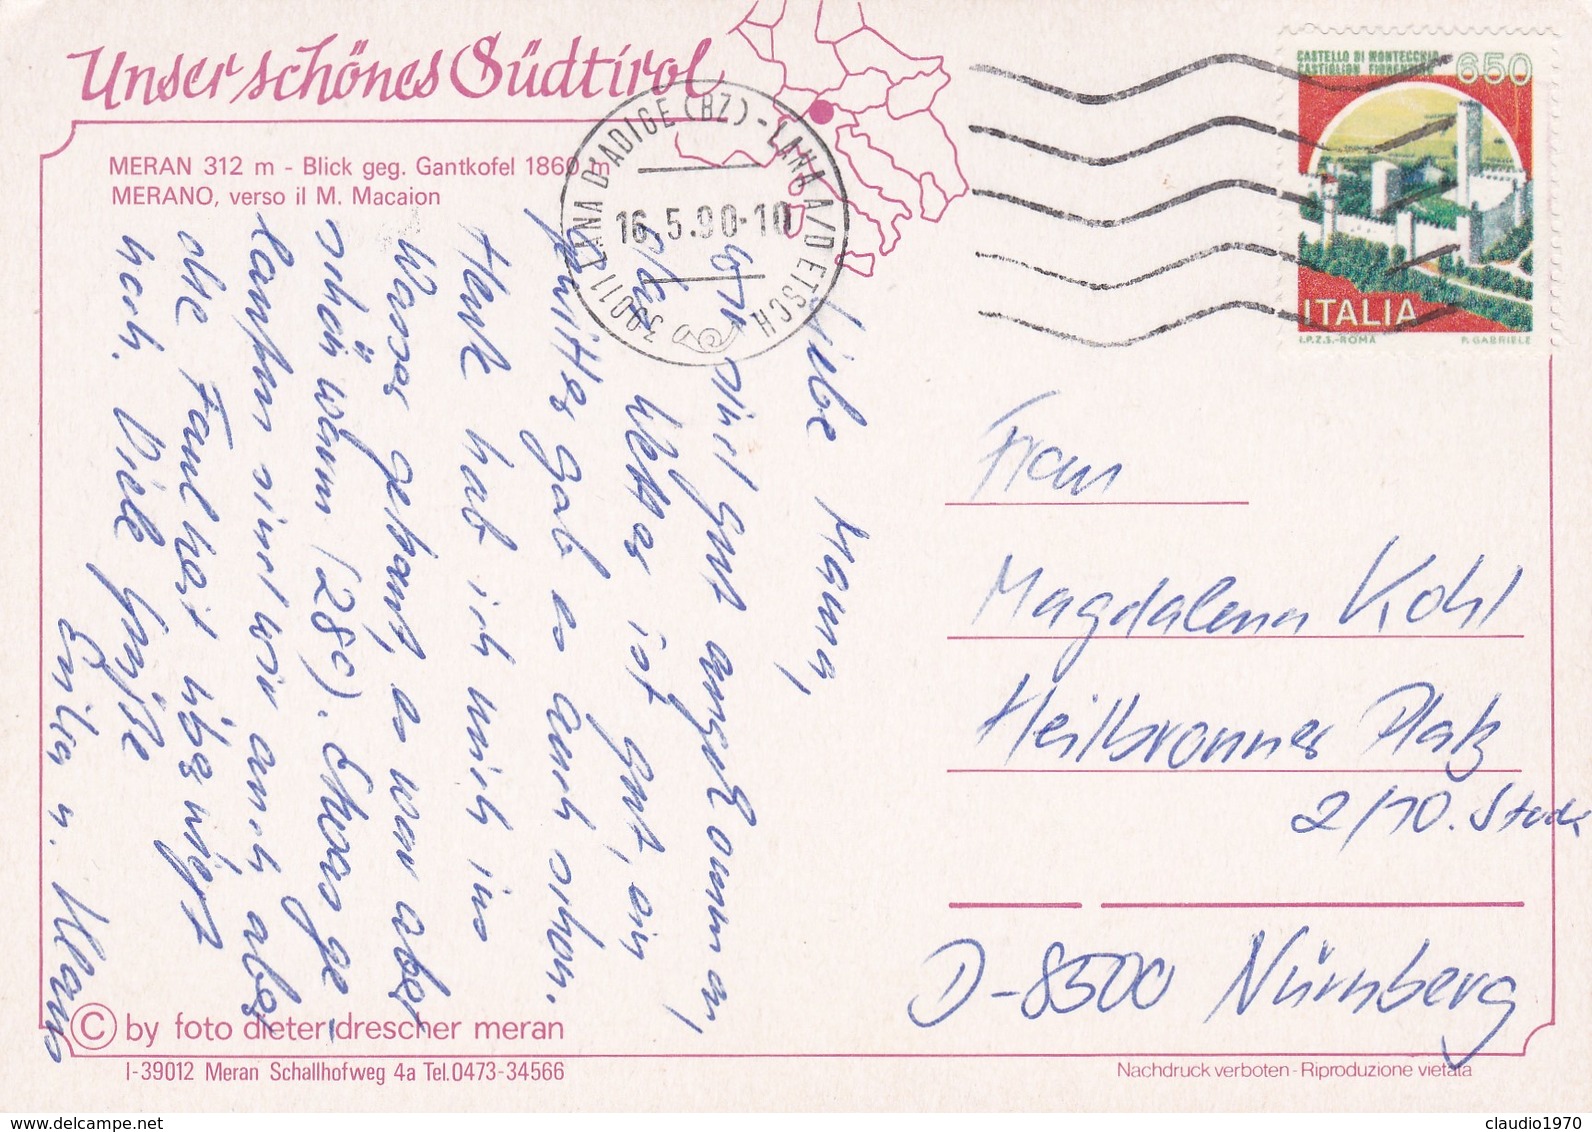 Unser schönes Südtirol
MERAN 312 m - Blick geg. Gantkofel 1860 m
MERANO, verso il M. Macaion
39011 LANA D'ADIGE (BZ) - LANA A/D ETSCH
16.5.90-10
CASTELLO DI MONTECCHIO
CASTIGLION FIORENTINO
650
ITALIA
I.P.Z.S.-ROMA P. GABRIELE
Liebe Mama,
wir sind gut angekommen,
das Wetter ist gut, ein
Gewitter gab es auch schon.
Heut hab ich mich ins
Wasser getraut, es war aber
schön warm (28c). Etwas ge-
laufen sind wir auch aber
die Faulheit überwiegt
noch. Viele Grüße
Erika u. Klaus
Frau
Magdalena Kohl
Heilbronner Platz
2/10. Stock
D-8500 Nürnberg
© by foto dieter drescher meran
I-39012 Meran Schallhofweg 4a Tel.0473-34566
Nachdruck verboten - Riproduzione vietata
www.delcampe.net
claudio1970